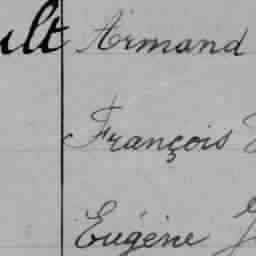 Armand
François
Eugène